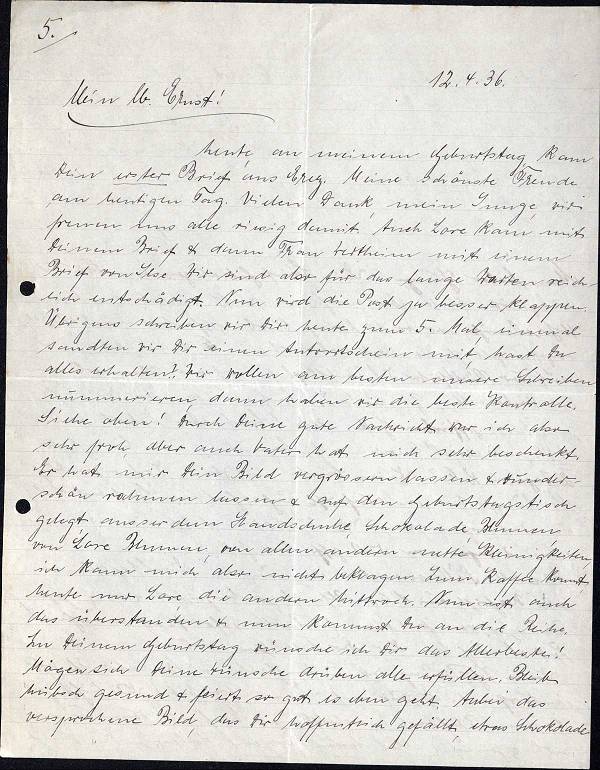 5.
12.4.36.
Mein lb. Ernst!
heute an meinem Geburtstag kam
Dein erster Brief aus Erez. Meine schönste Freude
am heutigen Tag. Vielen Dank, mein Junge, wir
freuen uns alle riesig damit. Auch Lore kam mit
Deinem Brief & dann Frau Wertheim mit einem
Brief von Ilse. Wir sind also für das lange Warten reich-
lich entschädigt. Nun wird die Post ja besser klappen.
Übrigens schreiben wir Dir heute zum 5. Mal, einmal
sandten wir Dir einen Antwortschein mit, hast Du
alles erhalten? Wir wollen am besten unsere Schreiben
nummerieren, dann haben wir die beste Kontrolle.
Siehe oben! Durch Deine gute Nachricht war ich also
sehr froh aber auch Vater hat mich sehr beschenkt.
Er hat mir Dein Bild vergrössern lassen & wunder-
schön rahmen lassen & auf den Geburtstagstisch
gelegt, ausserdem Handschuhe, Schokolade, Blumen,
von Lore Blumen, von allen andern nette Kleinigkeiten,
ich kann mich also nicht beklagen. Zum Kaffee kommt
heute nur Lore, die andern Mittwoch. Nun ist auch
das überstanden & nun kommst Du an die Reihe.
Zu Deinem Geburtstag wünsche ich Dir das Allerbeste!
Mögen sich Deine Wünsche drüben alle erfüllen. Bleib
hübsch gesund & feiert so gut es eben geht. Anbei das
versprochene Bild, das Dir hoffentlich gefällt, etwas Schokolade